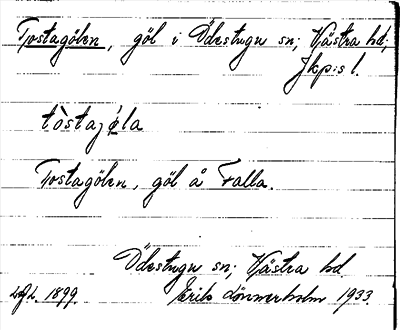 Tostagölen, göl i Ödestugu sn; Västra hd;
Jkpis l.
tòstajǿla
Tostagölen, göl å Falla.
Ödestugu sn; Västra hd
1899. Erik Lönnerholm 1933.